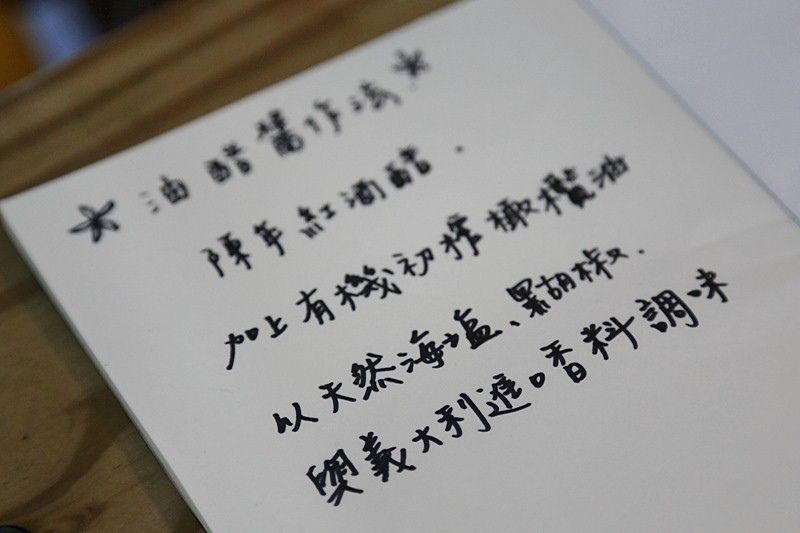 *油醋醬作法*
陳年紅酒醋.
加上有機初搾橄欖油
以天然海塩、黑胡椒.
與義大利進口香料調味